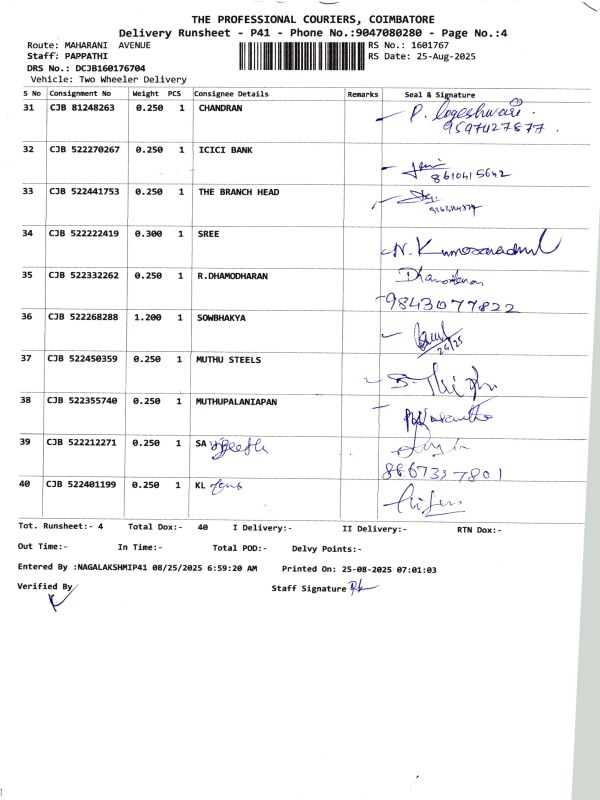 THE PROFESSIONAL COURIERS, COIMBATORE
Delivery Runsheet - P41 - Phone No.:9047080280 - Page No.:4
Route: MAHARANI AVENUE RS No.: 1601767
Staff: PAPPATHI RS Date: 25-Aug-2025
DRS No.: DCJB160176704
Vehicle: Two Wheeler Delivery
S No Consignment No Weight PCS Consignee Details Remarks Seal & Signature
31 CJB 81248263 0.250 1 CHANDRAN P. Logeshwari
9597427877
32 CJB 522270267 0.250 1 ICICI BANK
8610415642
33 CJB 522441753 0.250 1 THE BRANCH HEAD
34 CJB 522222419 0.300 1 SREE
35 CJB 522332262 0.250 1 R.DHAMODHARAN
9843077822
36 CJB 522268288 1.200 1 SOWBHAKYA
37 CJB 522450359 0.250 1 MUTHU STEELS
38 CJB 522355740 0.250 1 MUTHUPALANIAPAN
39 CJB 522212271 0.250 1 SA
8867357801
40 CJB 522401199 0.250 1 KL
Tot. Runsheet:- 4 Total Dox:- 40 I Delivery:- II Delivery:- RTN Dox:-
Out Time:- In Time:- Total POD:- Delvy Points:-
Entered By :NAGALAKSHMIP41 08/25/2025 6:59:20 AM Printed On: 25-08-2025 07:01:03
Verified By Staff Signature